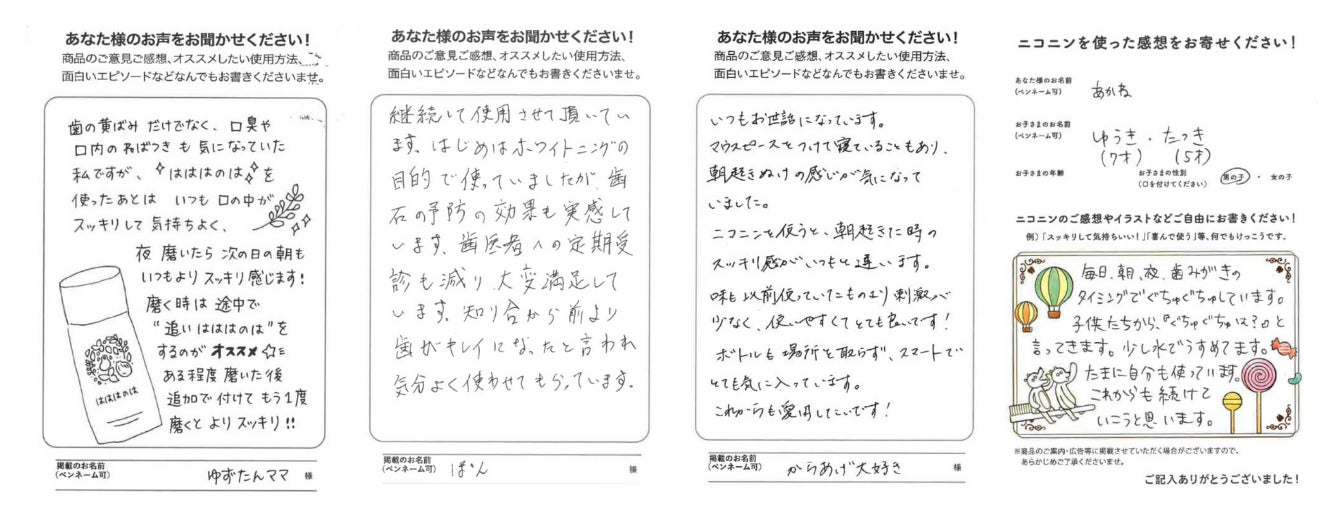 あなた様のお声をお聞かせください！
商品のご意見ご感想、オススメしたい使用方法、
面白いエピソードなどなんでもお書きくださいませ。
歯の黄ばみ だけでなく、口臭や
口内の ねばつき も 気になっていた
私ですが、✧ははは のは✧を
使ったあとは いつも 口の中が
スッキリして 気持ちよく、
夜 磨いたら 次の日の朝も
いつもより スッキリ感じます！
磨く時は 途中で
“追い はははのは”を
するのが オススメ☆
ある程度 磨いた後
追加で 付けて もう1度
磨くと よりスッキリ!!
はははのは
掲載のお名前
（ペンネーム可）
ゆずたんママ 様
あなた様のお声をお聞かせください！
商品のご意見ご感想、オススメしたい使用方法、
面白いエピソードなどなんでもお書きくださいませ。
継続して使用させて頂いてい
ます。はじめはホワイトニングの
目的で使っていましたが、歯
石の予防の効果も実感して
います。歯医者への定期受
診も減り、大変満足して
います。知り合から前より
歯がキレイになったと言われ
気分よく使わせてもらっています。
掲載のお名前
（ペンネーム可）
ぽん 様
あなた様のお声をお聞かせください！
商品のご意見ご感想、オススメしたい使用方法、
面白いエピソードなどなんでもお書きくださいませ。
いつもお世話になっています。
マウスピースをつけて寝ていることもあり、
朝起きぬけの感じが気になって
いました。
ニコニンを使うと、朝起きた時の
スッキリ感がいつもと違います。
味も以前使っていたものより刺激が
少なく、使いやすくてとても良いです！
ボトルも場所を取らず、スマートで
とても気に入っています。
これからも愛用したいです！
掲載のお名前
（ペンネーム可）
からあげ大好き 様
ニコニンを使った感想をお寄せください！
あなた様のお名前
（ペンネーム可）
あかね
お子さまのお名前
（ペンネーム可）
ゆうき・たつき
（7才） （5才）
お子さまの年齢
お子さまの性別
（○を付けてください）
男の子 ・ 女の子
ニコニンのご感想やイラストなどご自由にお書きください！
例）「スッキリして気持ちいい！」「喜んで使う」等、何でもけっこうです。
毎日、朝、夜、歯みがきの
タイミングでぐちゅぐちゅしています。
子供たちから、『ぐちゅぐちゅは？』と
言ってきます。少し水でうすめてます。
たまに自分も使っています。
これからも続けて
いこうと思います。
※商品のご案内・広告等に掲載させていただく場合がございますので、
あらかじめご了承くださいませ。
ご記入ありがとうございました！